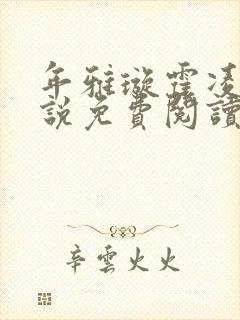 年雅璇霍凌
說免費閱讀
辛雲火火